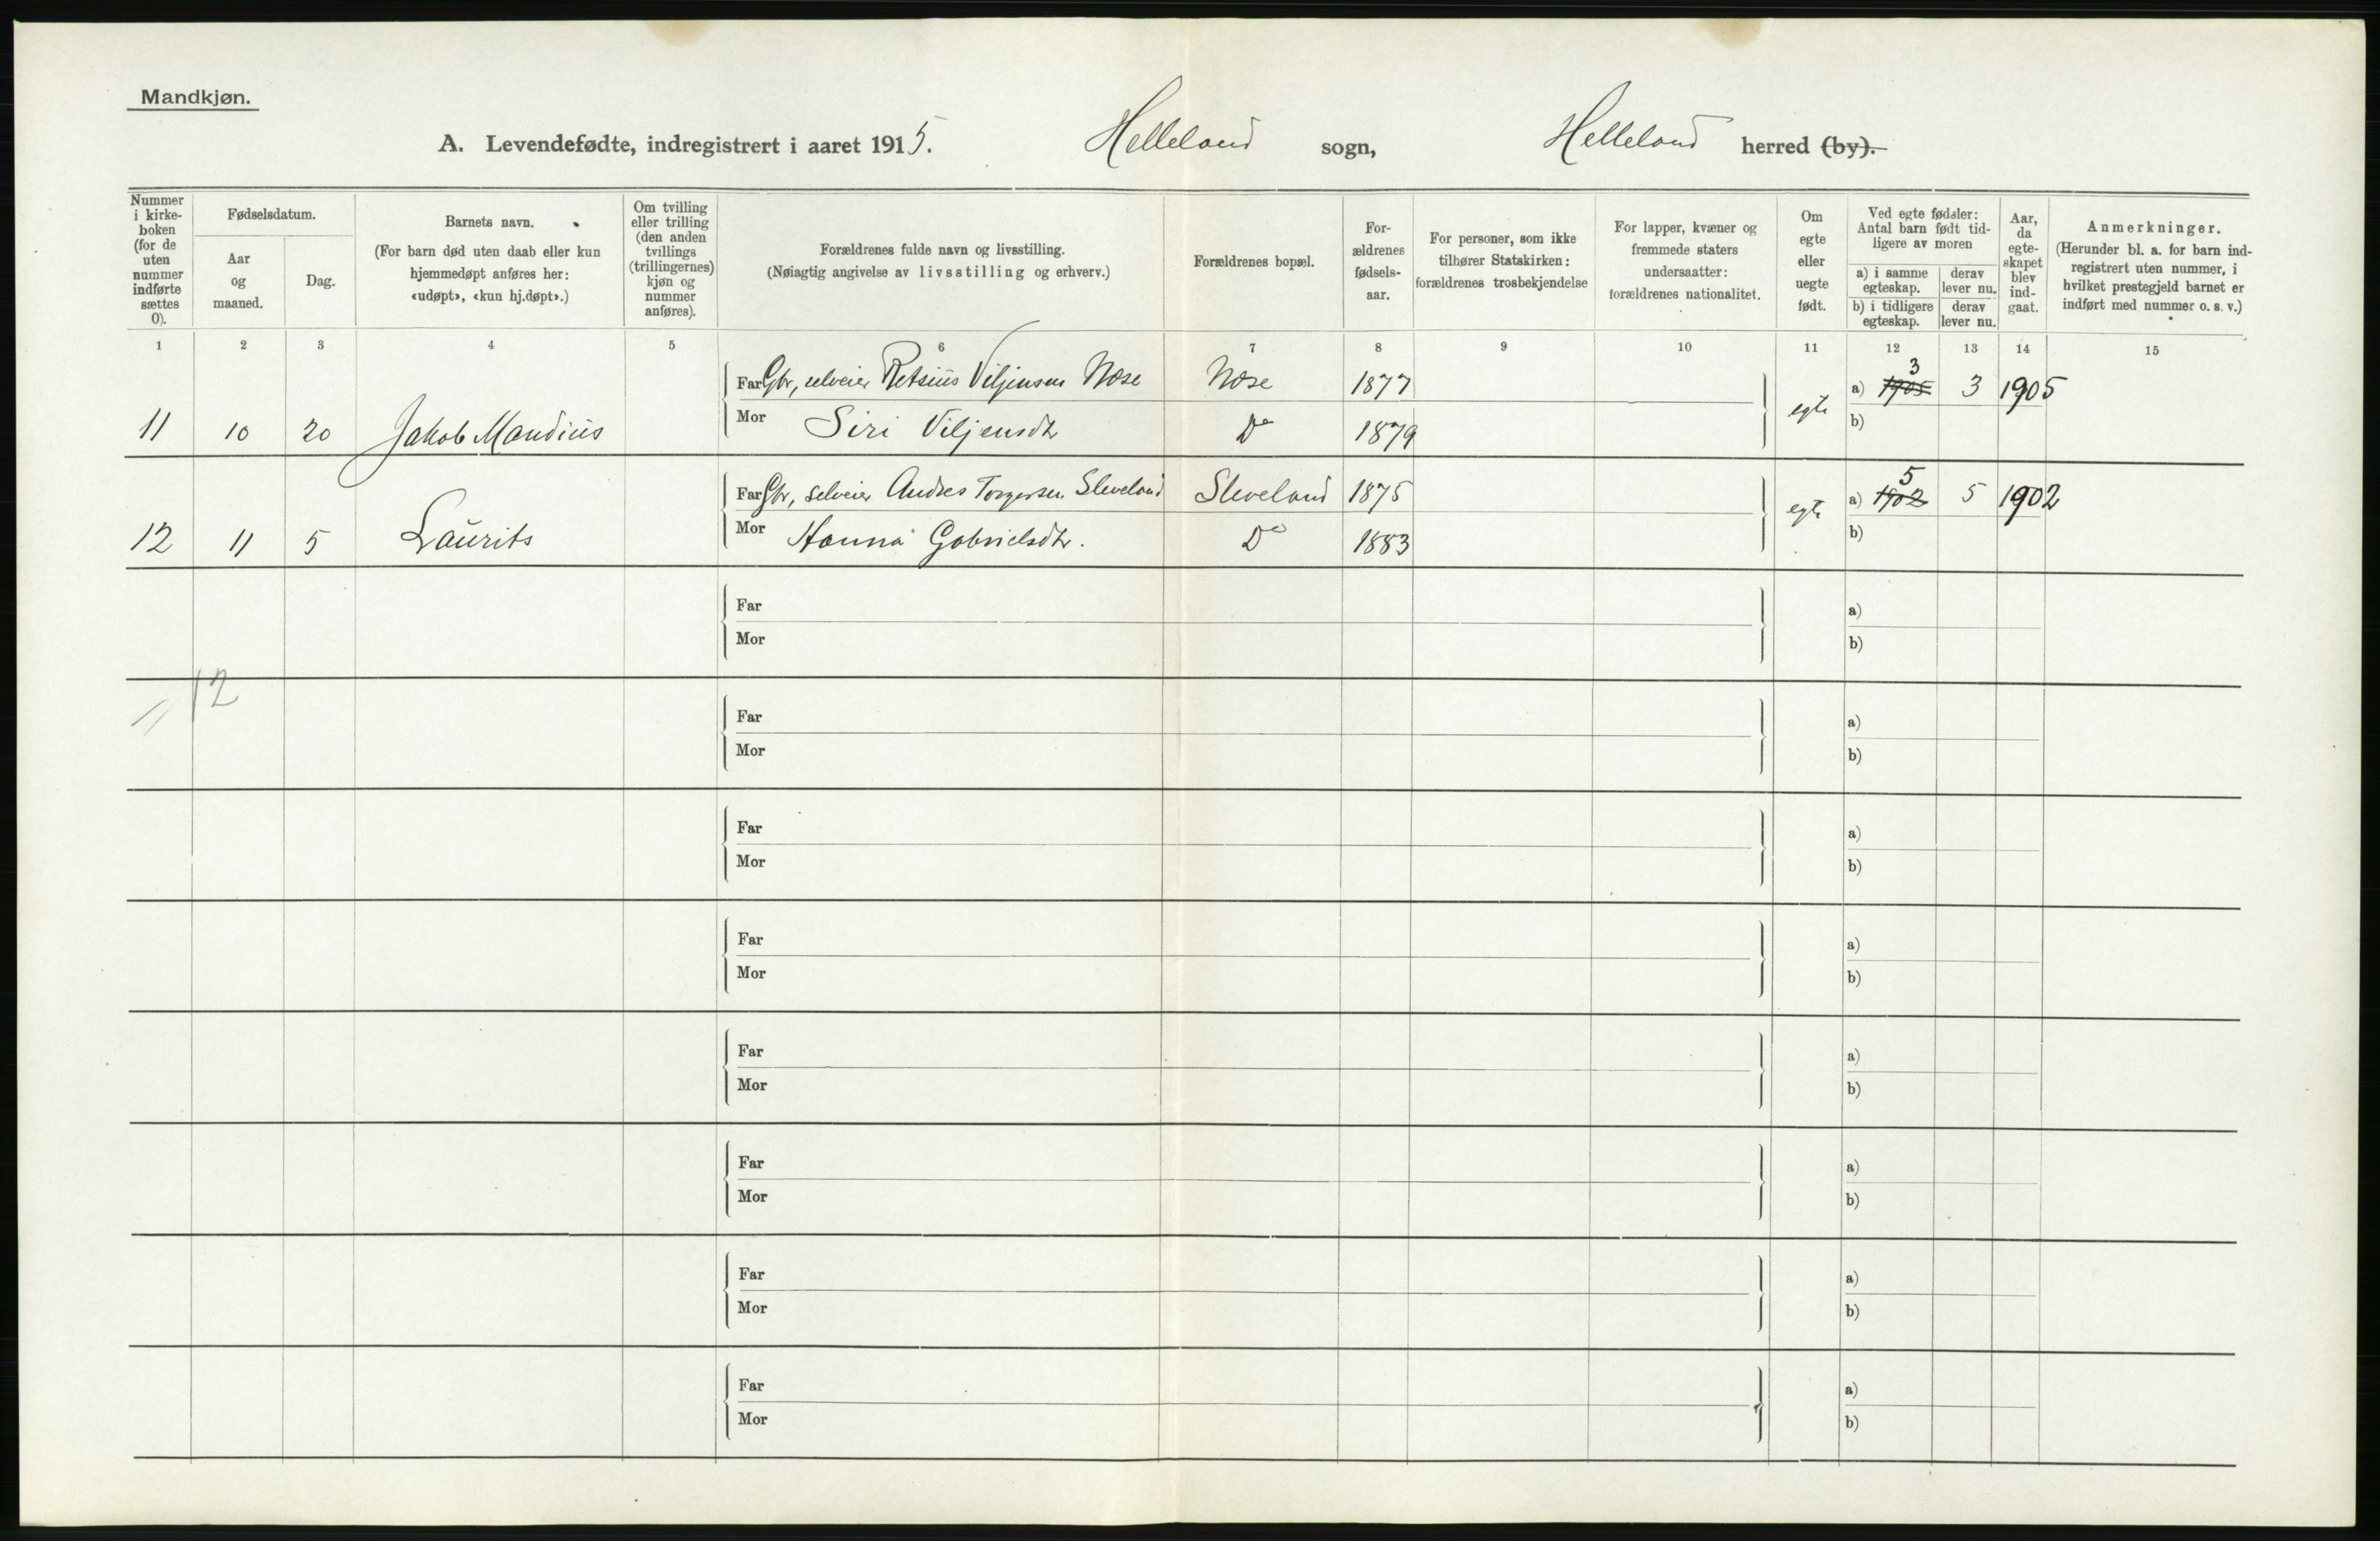 Mandkjøn.
A. Levendefødte, indregistrert i aaret 1915. Helleland sogn, Helleland herred (by).
Nummer i kirkeboken (for de uten nummer indførte sættes 0).
Fødselsdatum.
Aar og maaned.
Dag.
Barnets navn.
(For barn død uten daab eller kun hjemmedøpt anføres her: «udøpt», «kun hj.døpt».)
Om tvilling eller trilling (den anden tvillings (trillingernes) kjøn og nummer anføres).
Forældrenes fulde navn og livsstilling.
(Nøiagtig angivelse av livsstilling og erhverv.)
Forældrenes bopæl.
Forældrenes fødselsaar.
For personer, som ikke tilhører Statskirken: forældrenes trosbekjendelse
For lapper, kvæner og fremmede staters undersaatter: forældrenes nationalitet.
Om egte eller uegte født.
Ved egte fødsler: Antal barn født tidligere av moren
a) i samme egteskap.
derav lever nu.
b) i tidligere egteskap.
derav lever nu.
Aar, da egteskapet blev indgaat.
Anmerkninger.
(Herunder bl. a. for barn indregistrert uten nummer, i hvilket prestegjeld barnet er indført med nummer o. s. v.)
1 2 3 4 5 6 7 8 9 10 11 12 13 14 15
Far Gbr, selveier Retsius Viljensen Nose Nose 1877 a) 1905 3 3 1905
11 10 20 Jakob Mandius Mor Siri Viljensdtr Do 1879 egte b)
Far Gbr, selveier Andres Torgersen Sleveland Sleveland 1875 a) 1902 5 5 1902
12 11 5 Laurits Mor Hanna Gabrielsdtr. Do 1883 egte b)
Far a)
Mor b)
12
Far a)
Mor b)
Far a)
Mor b)
Far a)
Mor b)
Far a)
Mor b)
Far a)
Mor b)
Far a)
Mor b)
Far a)
Mor b)